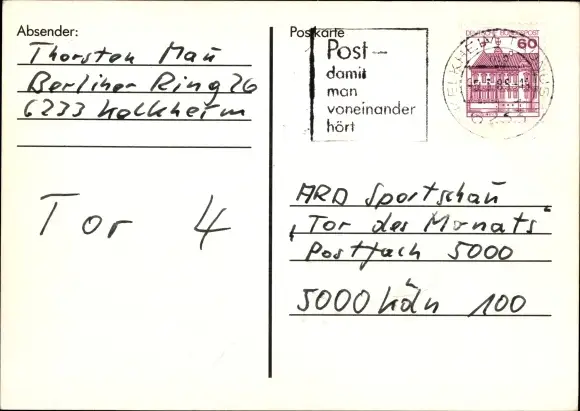 Absender:
Thorsten Mau
Berliner Ring 26
6233 Kelkheim
Tor 4
Postkarte
Post –
damit
man
voneinander
hört
60
ARD Sportschau
"Tor des Monats"
Postfach 5000
5000 Köln 100